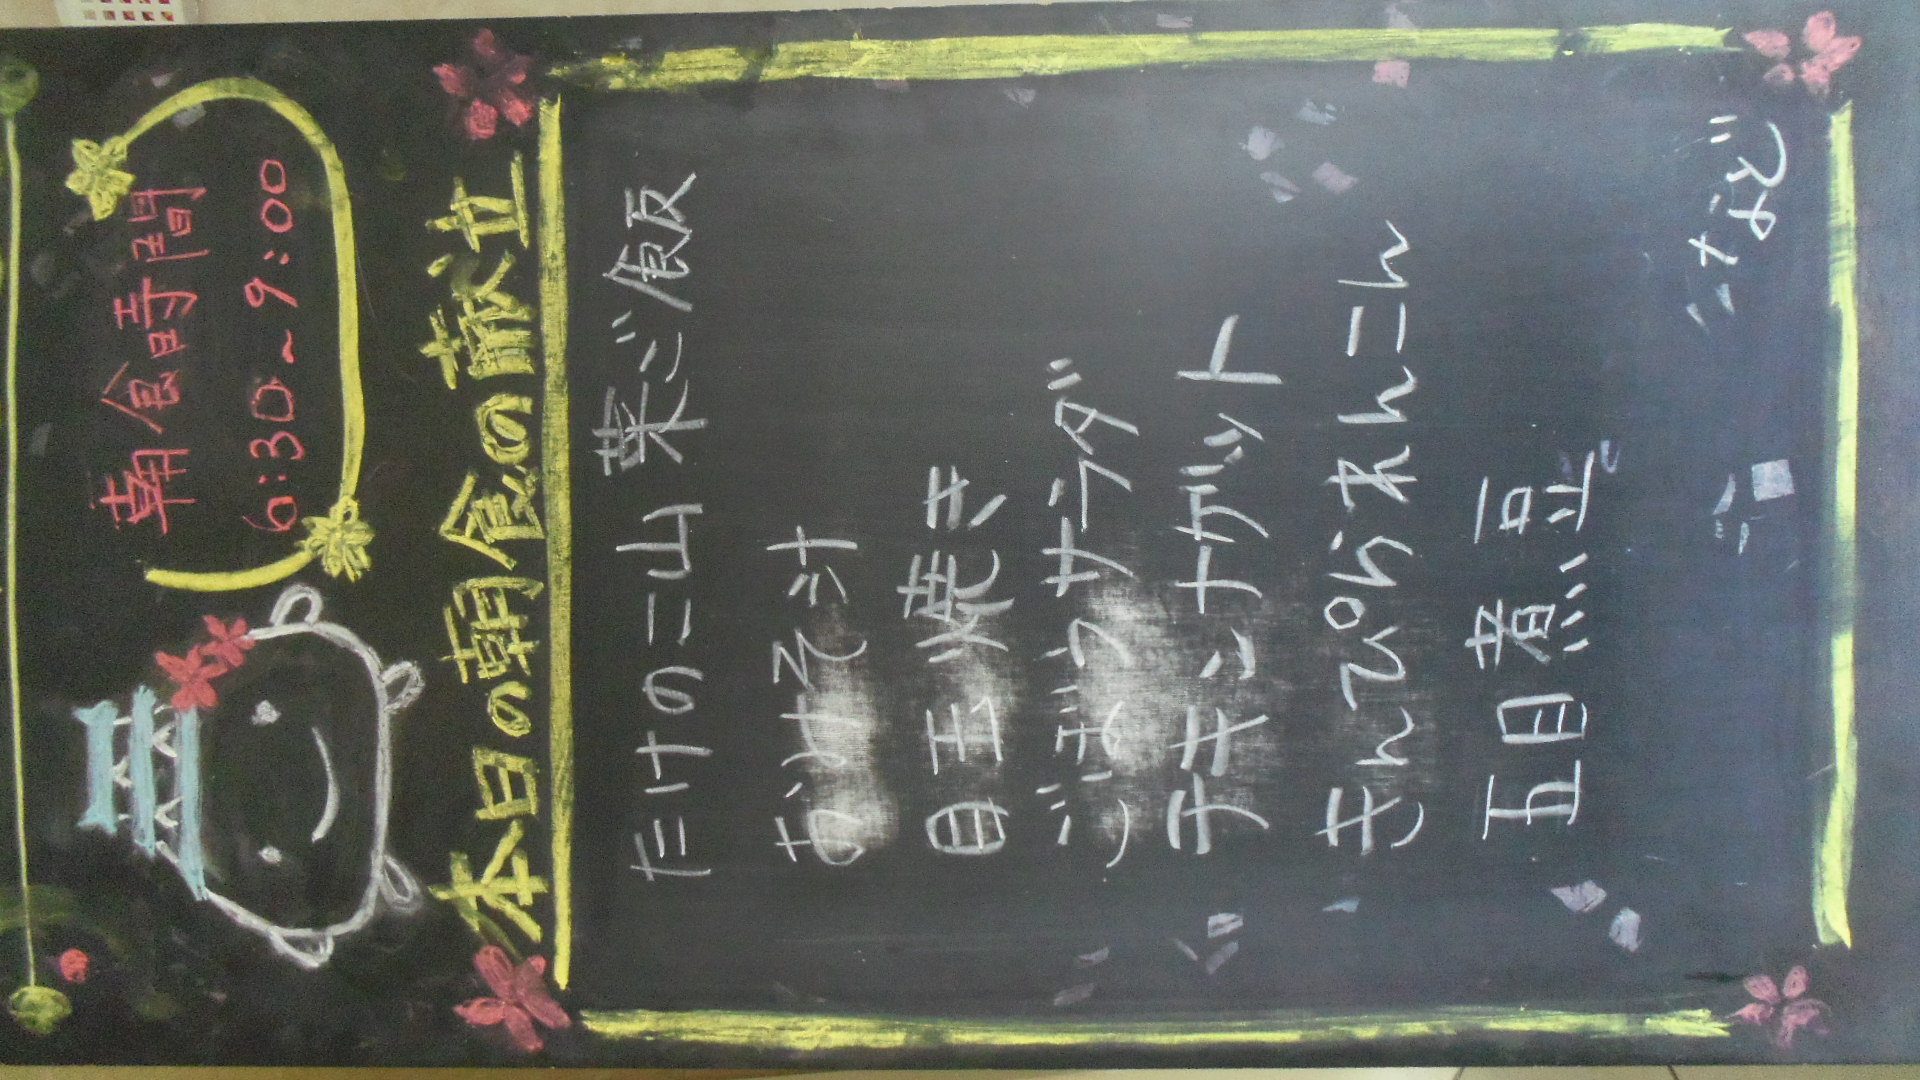 朝食時間
6:30~9:00
本日の朝食の献立
たけのこ山菜ご飯
おみそ汁
目玉焼き
ごぼうサラダ
チキンナゲット
きんぴられんこん
五目煮豆
など